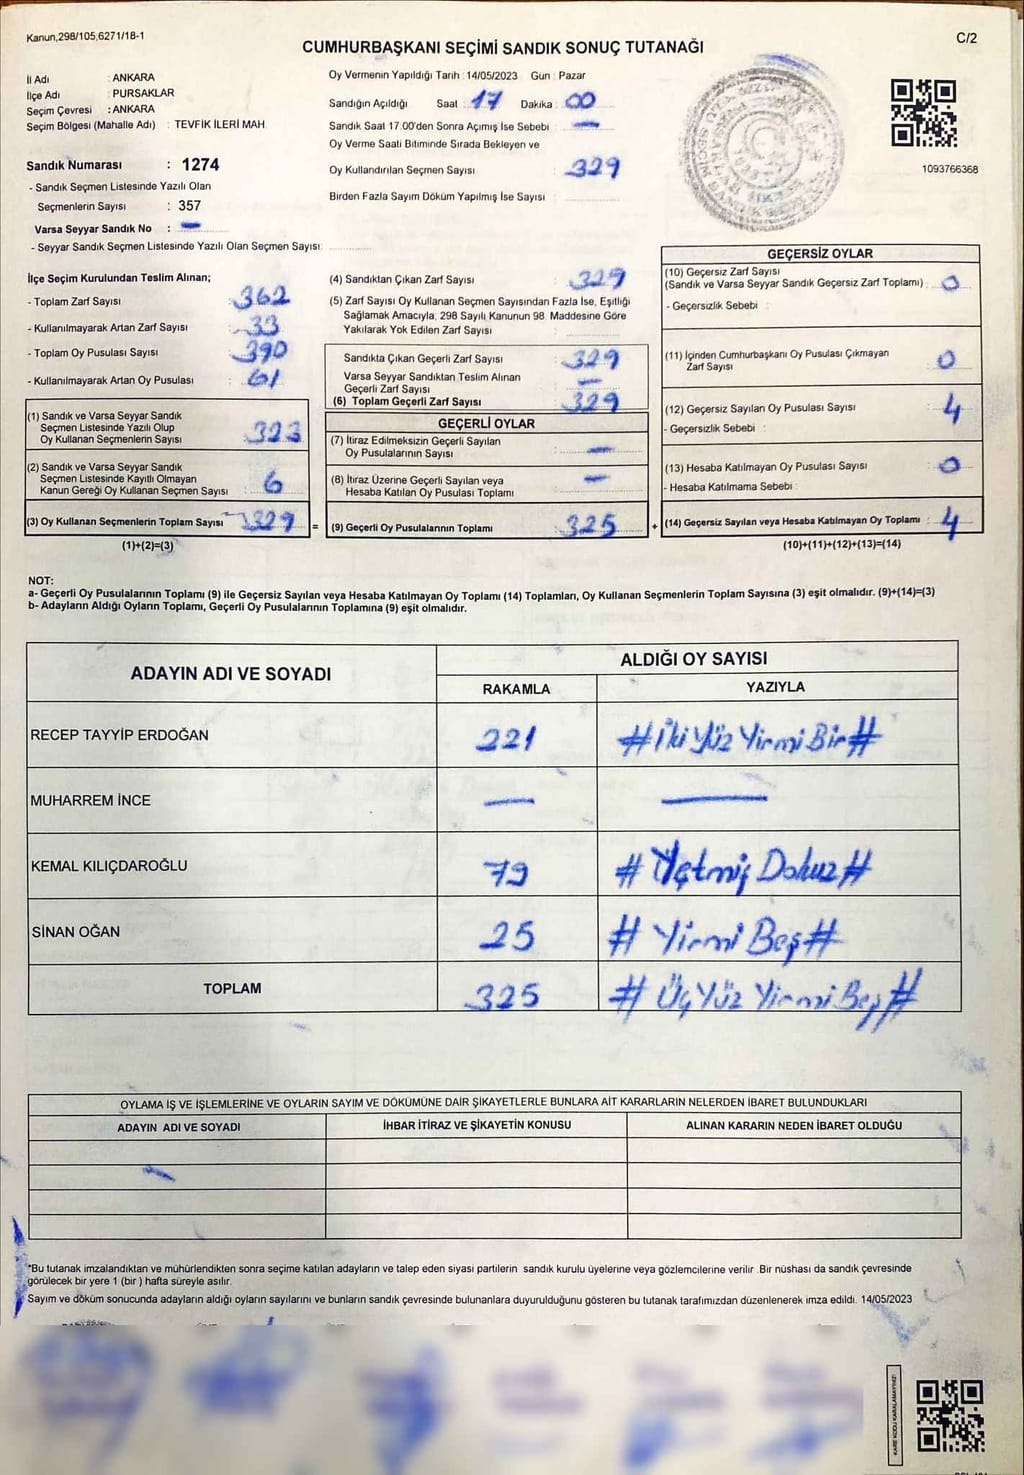 Kanun,298/105,6271/18-1
C/2
CUMHURBAŞKANI SEÇİMİ SANDIK SONUÇ TUTANAĞI
İl Adı : ANKARA
İlçe Adı : PURSAKLAR
Seçim Çevresi : ANKARA
Seçim Bölgesi (Mahalle Adı) : TEVFİK İLERİ MAH.
Sandık Numarası : 1274
- Sandık Seçmen Listesinde Yazılı Olan
Seçmenlerin Sayısı : 357
Varsa Seyyar Sandık No : —
- Seyyar Sandık Seçmen Listesinde Yazılı Olan Seçmen Sayısı:
Oy Vermenin Yapıldığı Tarih : 14/05/2023 Gün : Pazar
Sandığın Açıldığı Saat : 17 Dakika : 00
Sandık Saat 17:00'den Sonra Açımış İse Sebebi : —
Oy Verme Saati Bitiminde Sırada Bekleyen ve
Oy Kullandırılan Seçmen Sayısı : 329
Birden Fazla Sayım Döküm Yapılmış İse Sayısı :
1093766368
İlçe Seçim Kurulundan Teslim Alınan;
- Toplam Zarf Sayısı : 362
- Kullanılmayarak Artan Zarf Sayısı : 33
- Toplam Oy Pusulası Sayısı : 390
- Kullanılmayarak Artan Oy Pusulası : 61
(1) Sandık ve Varsa Seyyar Sandık
Seçmen Listesinde Yazılı Olup
Oy Kullanan Seçmenlerin Sayısı : 323
(2) Sandık ve Varsa Seyyar Sandık
Seçmen Listesinde Kayıtlı Olmayan
Kanun Gereği Oy Kullanan Seçmen Sayısı : 6
(3) Oy Kullanan Seçmenlerin Toplam Sayısı : 329 =
(1)+(2)=(3)
(4) Sandıktan Çıkan Zarf Sayısı : 329
(5) Zarf Sayısı Oy Kullanan Seçmen Sayısından Fazla İse, Eşitliği
Sağlamak Amacıyla; 298 Sayılı Kanunun 98. Maddesine Göre
Yakılarak Yok Edilen Zarf Sayısı :
Sandıkta Çıkan Geçerli Zarf Sayısı : 329
Varsa Seyyar Sandıktan Teslim Alınan
Geçerli Zarf Sayısı : —
(6) Toplam Geçerli Zarf Sayısı : 329
GEÇERLİ OYLAR
(7) İtiraz Edilmeksizin Geçerli Sayılan
Oy Pusulalarının Sayısı : —
(8) İtiraz Üzerine Geçerli Sayılan veya
Hesaba Katılan Oy Pusulası Toplamı : —
(9) Geçerli Oy Pusulalarının Toplamı : 325 +
GEÇERSİZ OYLAR
(10) Geçersiz Zarf Sayısı
(Sandık ve Varsa Seyyar Sandık Geçersiz Zarf Toplamı) : 0
- Geçersizlik Sebebi :
(11) İçinden Cumhurbaşkanı Oy Pusulası Çıkmayan
Zarf Sayısı : 0
(12) Geçersiz Sayılan Oy Pusulası Sayısı : 4
- Geçersizlik Sebebi :
(13) Hesaba Katılmayan Oy Pusulası Sayısı : 0
- Hesaba Katılmama Sebebi :
(14) Geçersiz Sayılan veya Hesaba Katılmayan Oy Toplamı : 4
(10)+(11)+(12)+(13)=(14)
NOT:
a- Geçerli Oy Pusulalarının Toplamı (9) ile Geçersiz Sayılan veya Hesaba Katılmayan Oy Toplamı (14) Toplamları, Oy Kullanan Seçmenlerin Toplam Sayısına (3) eşit olmalıdır. (9)+(14)=(3)
b- Adayların Aldığı Oyların Toplamı, Geçerli Oy Pusulalarının Toplamına (9) eşit olmalıdır.
ADAYIN ADI VE SOYADI
ALDIĞI OY SAYISI
RAKAMLA YAZIYLA
RECEP TAYYİP ERDOĞAN 221 # İki Yüz Yirmi Bir #
MUHARREM İNCE — —
KEMAL KILIÇDAROĞLU 79 # Yetmiş Dokuz #
SİNAN OĞAN 25 # Yirmi Beş #
TOPLAM 325 # Üç Yüz Yirmi Beş #
OYLAMA İŞ VE İŞLEMLERİNE VE OYLARIN SAYIM VE DÖKÜMÜNE DAİR ŞİKAYETLERLE BUNLARA AİT KARARLARIN NELERDEN İBARET BULUNDUKLARI
ADAYIN ADI VE SOYADI İHBAR İTİRAZ VE ŞİKAYETİN KONUSU ALINAN KARARIN NEDEN İBARET OLDUĞU
*Bu tutanak imzalandıktan ve mühürlendikten sonra seçime katılan adayların ve talep eden siyasi partilerin sandık kurulu üyelerine veya gözlemcilerine verilir. Bir nüshası da sandık çevresinde
görülecek bir yere 1 (bir ) hafta süreyle asılır.
Sayım ve döküm sonucunda adayların aldığı oyların sayılarını ve bunların sandık çevresinde bulunanlara duyurulduğunu gösteren bu tutanak tarafımızdan düzenlenerek imza edildi. 14/05/2023
KARE KODU KARALAMAYINIZ!